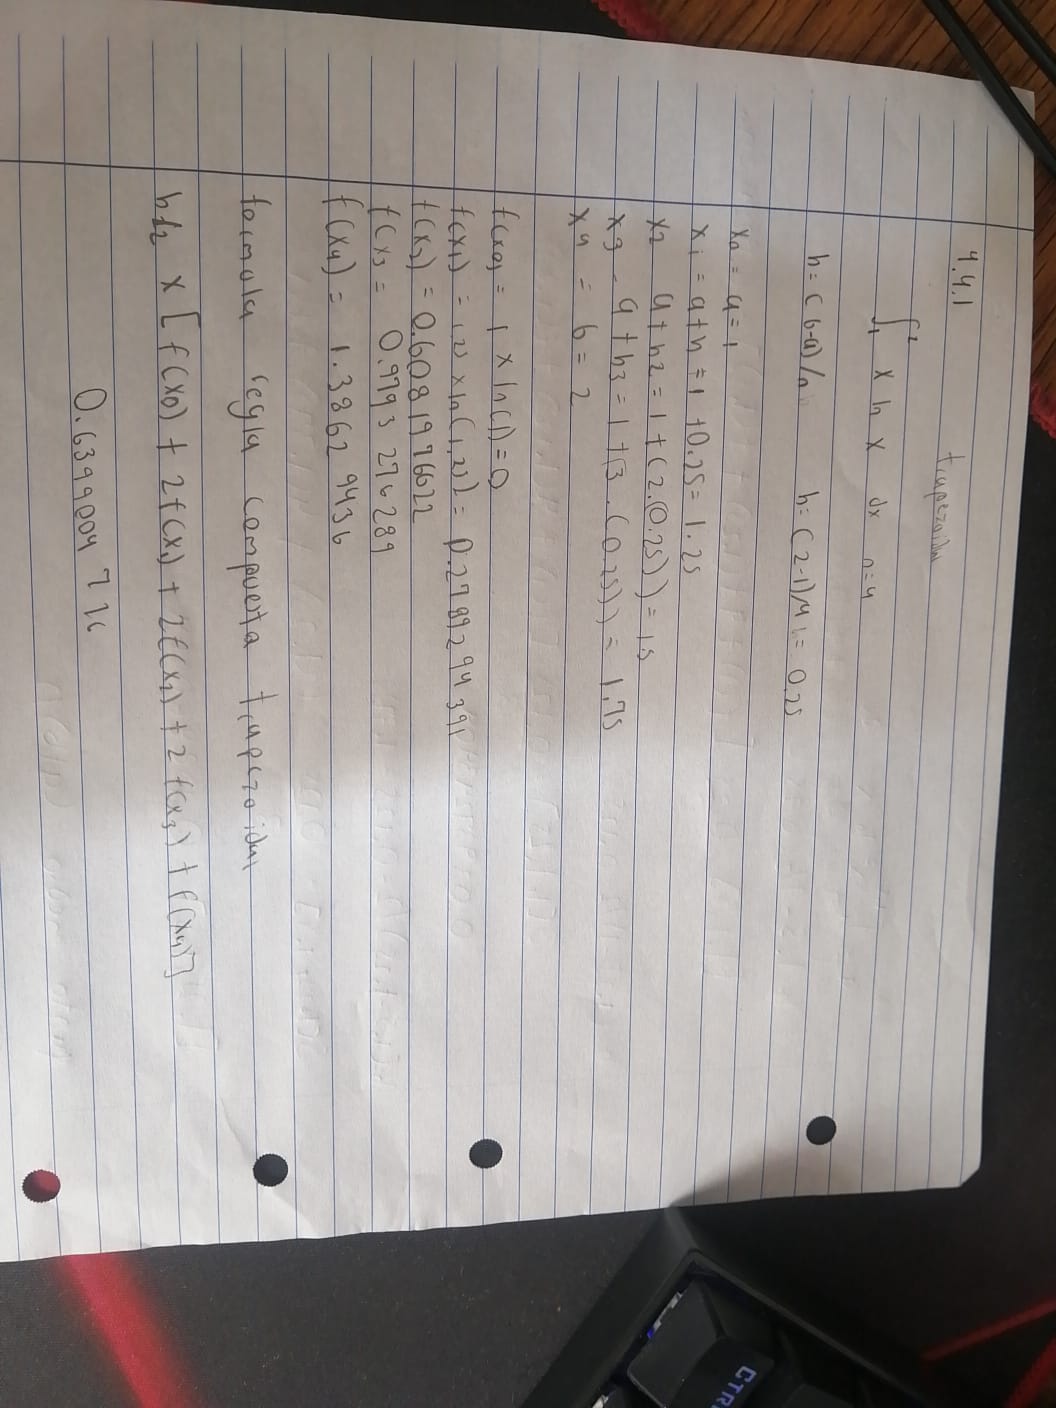 4.4.1
trapezoidal
∫₁² x ln x dx n=4
h= (b-a)/n h= (2-1)/4 = 0.25
x0 = a = 1
x1 = a+h = 1 +0.25= 1.25
x2 a+h2 = 1+(2.(0.25))= 1.5
x3 - a+h3 = 1+(3.(0.25)) = 1.75
x4 = b = 2
f(x0) = 1 x ln(1) = 0
f(x1) = 1.25 x ln(1.25) = 0.2789294391
f(x2) = 0.6081976622
f(x3 = 0.9793276289
f(x4) = 1.38629436
formula regla compuesta trapezoidal
h/2 x [f(x0) + 2f(x1) + 2f(x2) + 2f(x3) + f(x4)]
0.6399004716
CTR